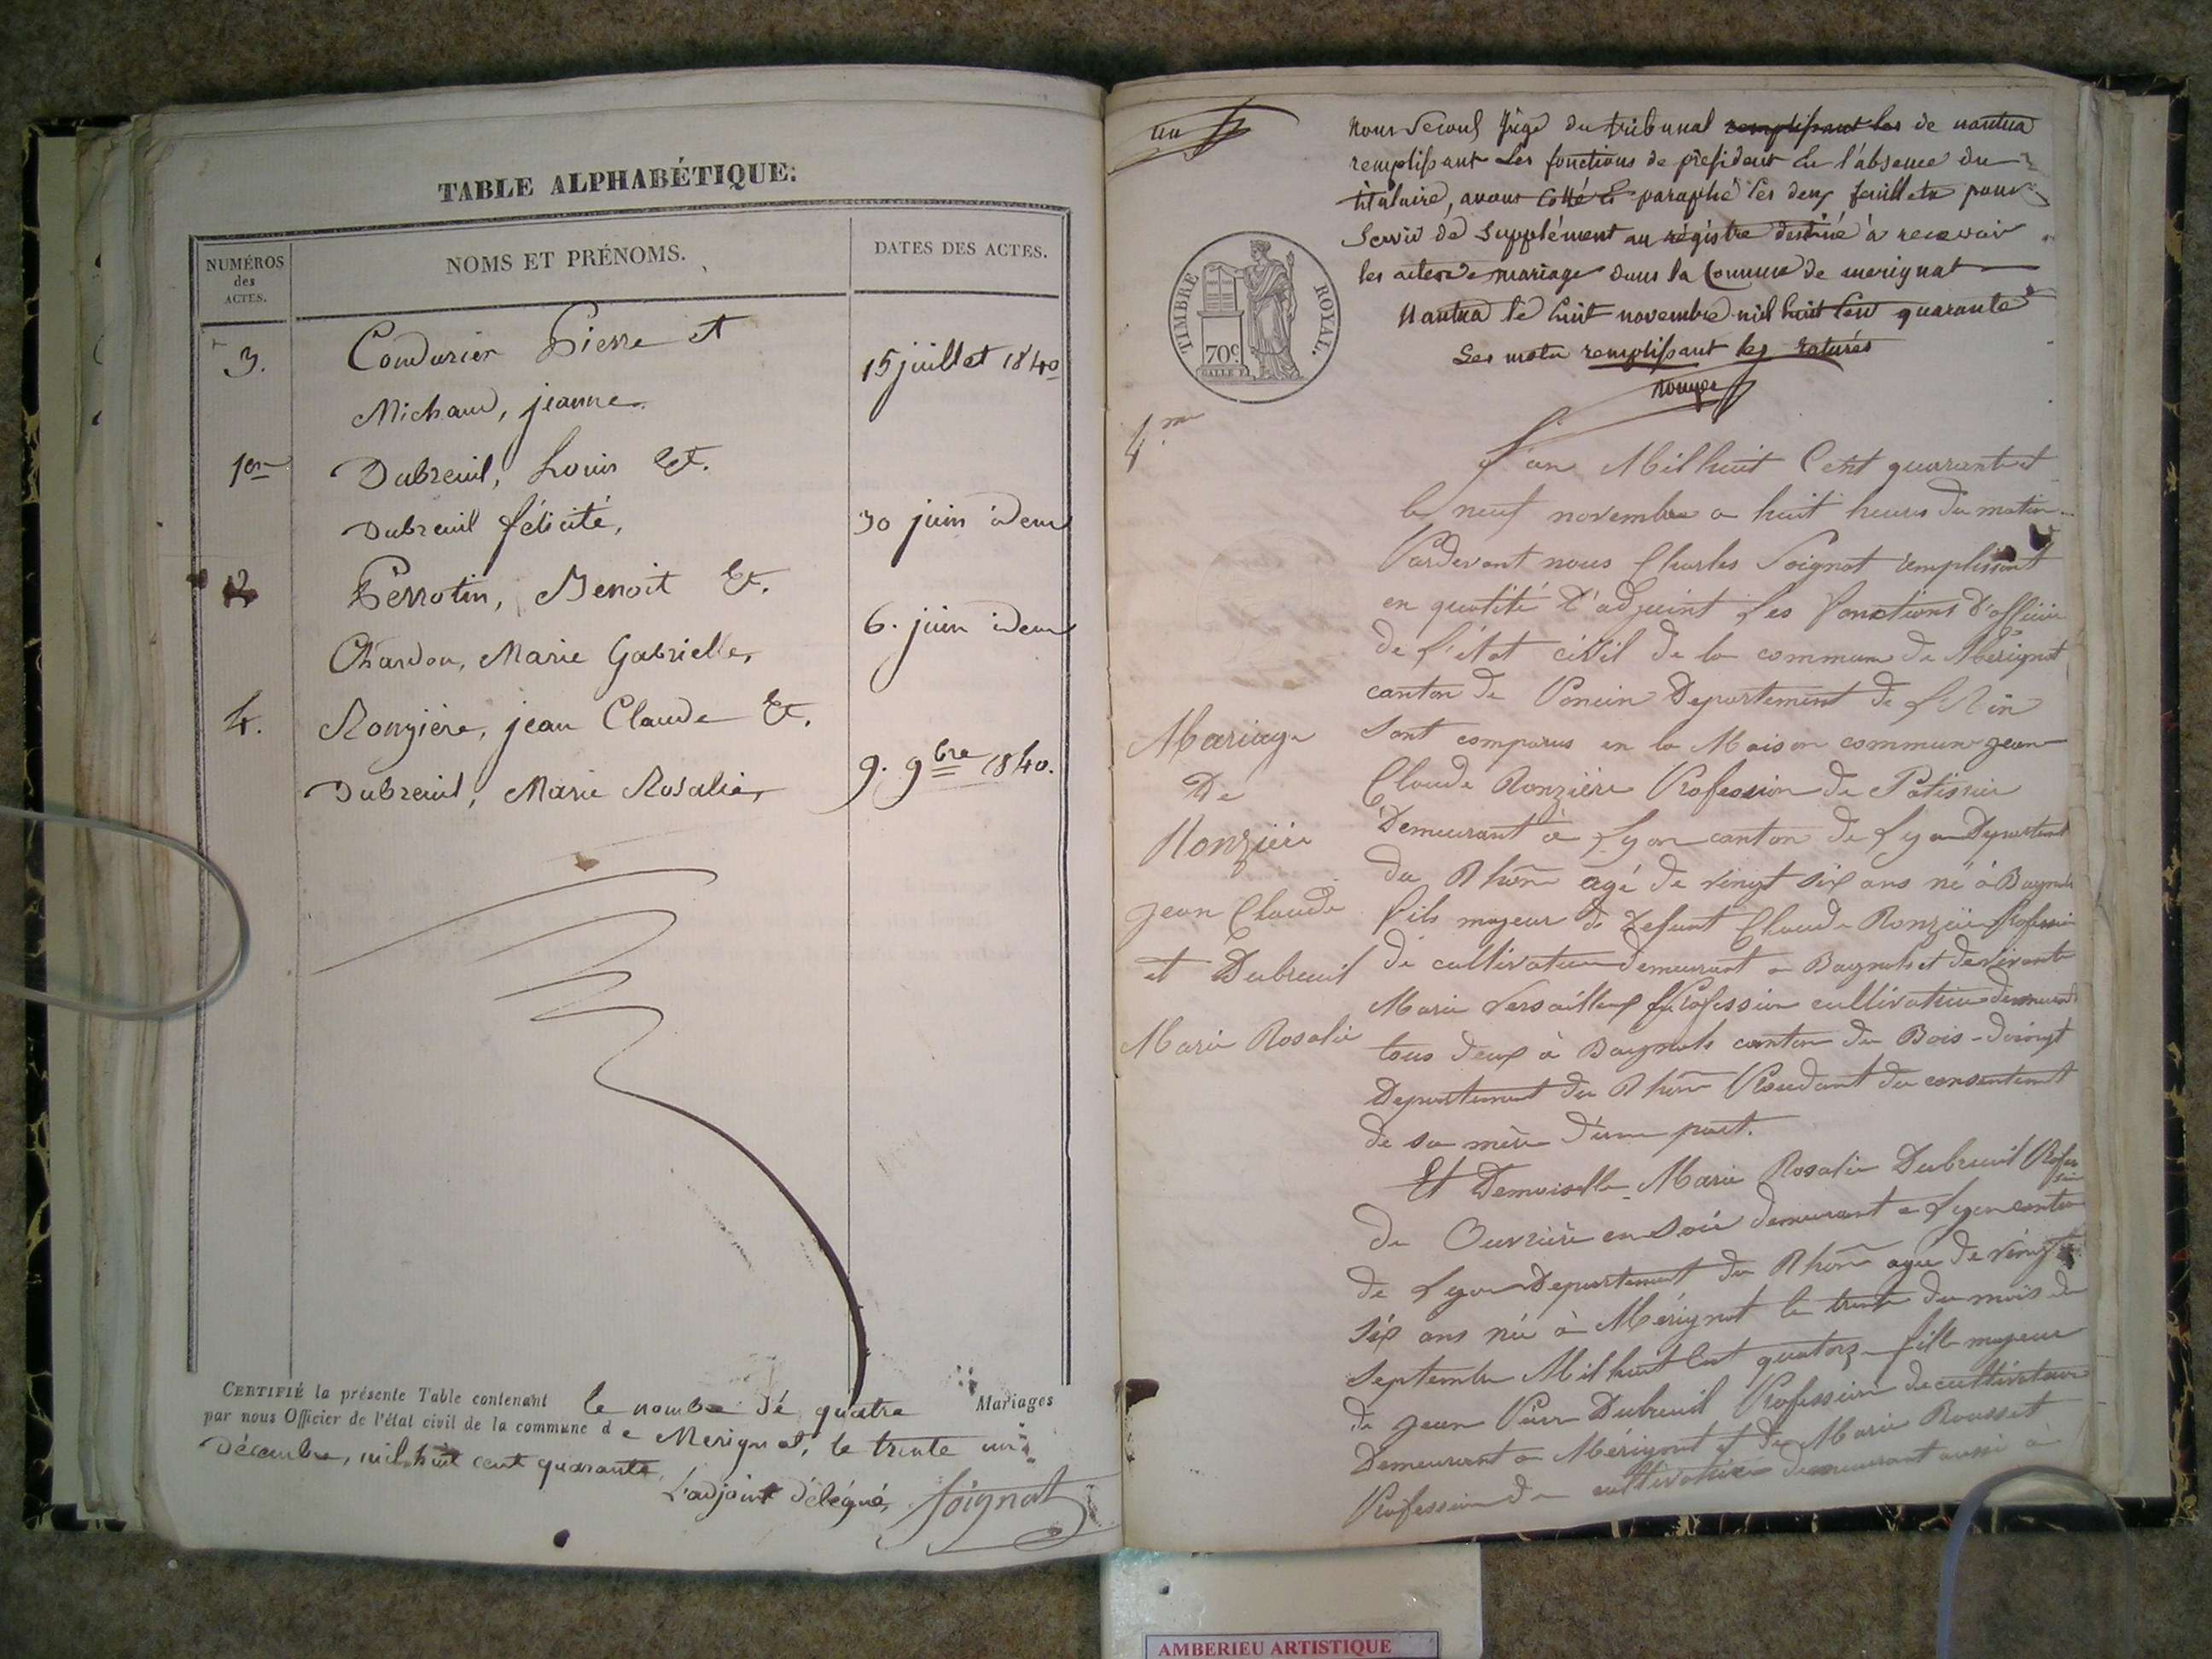 TABLE ALPHABÉTIQUE:
NUMÉROS
des
ACTES.
NOMS ET PRÉNOMS.
DATES DES ACTES.
3.
Coudurier Pierre et
Michaud, jeanne.
15 juillet 1840
1er
Dubreuil, Louis &.
Dubreuil félicité,
30 juin idem
2
Perrotin, Benoit &.
Chardon, Marie Gabrielle,
6. juin idem
4.
Ronzière, jean Claude &.
Dubreuil, Marie Rosalie,
9. 9bre 1840.
CERTIFIÉ la présente Table contenant le nombre dé quatre Mariages
par nous Officier de l'état civil de la commune de Merignat, le trente un
Décembre, mil huit cent quarante,
L'adjoint délégué, Soignat
un
Nous Second Juge du tribunal remplissant les de nantua
remplissant les fonctions de président en l'absence du
titulaire, avons cotté et paraphé les deux feuillets pour
Servir de Supplément au régistre destiné à recevoir
les actes de mariage dans la Commune de merignat
Nantua le huit novembre mil huit cent quarante
Les mots remplissant les raturés
TIMBRE ROYAL.
70c
4me
L'an Mil huit Cent quarante et
le neuf novembre a huit heures du matin
Pardevant nous Charles Soignat remplissant
en qualité d'adjoint Les fonctions d'officier
de l'état civil de la commune de Mérignat
canton de Poncin Departement de L'Ain
Sont comparus en la Maison commune jean
Claude Ronzière Profession de Patissier
Demeurant à Lyon canton de Lyon Departement
du Rhône agé de vingt six ans né à Bagnols
fils majeur de defunt Claude Ronzière Profession
de cultivateur demeurant a Bagnols et de vivante
Marie Versailleux Profession cultivatrice demeurant
tous deux à Bagnols canton du Bois-doingt
Departement du Rhône du consentement
de sa mère d'une part.
Et Demoiselle Marie Rosalie Dubreuil Profession
de Ouvrière en Soie demeurant a Lyon canton
de Lyon Departement du Rhône agée de vingt
six ans née à Mérignat le trente du mois de
septembre Mil huit Cent quatorze fille majeure
de jean Pierre Dubreuil Profession de cultivateur
Demeurant a Mérignat et de Marie Rousset
Profession de cultivatrice demeurant aussi à
Mariage
De
Ronzière
jean Claude
et Dubreuil
Marie Rosalie
AMBERIEU ARTISTIQUE